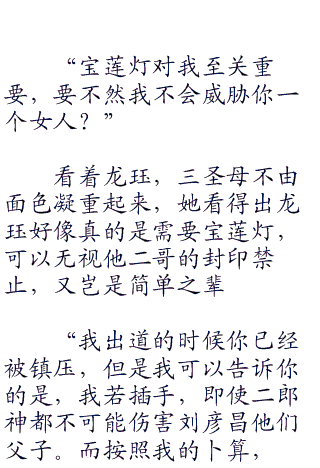 “宝莲灯对我至关重
要，要不然我不会威胁你一
个女人？”
看着龙珏，三圣母不由
面色凝重起来，她看得出龙
珏好像真的是需要宝莲灯，
可以无视他二哥的封印禁
止，又岂是简单之辈
“我出道的时候你已经
被镇压，但是我可以告诉你
的是，我若插手，即使二郎
神都不可能伤害刘彦昌他们
父子。而按照我的卜算，